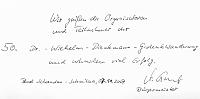 Wir grüßen die Organisatoren
und Teilnehmer der
50. Dr. - Wilhelm - Dieckmann - Gedenkwanderung
und wünschen viel Erfolg.
Bad Schandau -
Bürgermeister